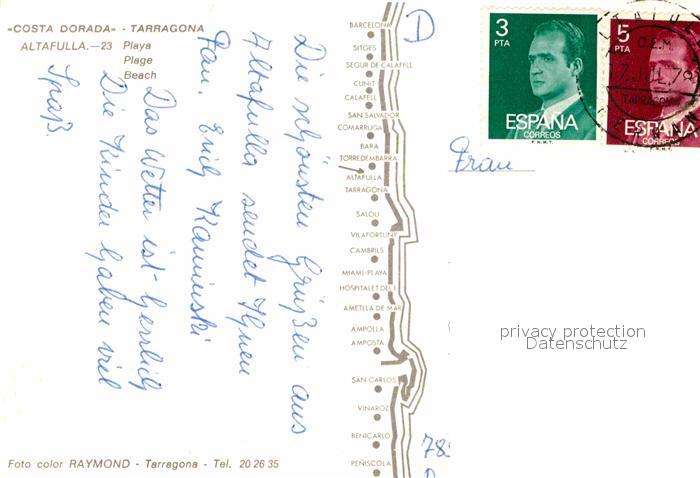 «COSTA DORADA» - TARRAGONA
ALTAFULLA.—23 Playa
Plage
Beach
Die schönsten Grüßen aus
Altafulla sendet Ihnen
Fam. Erich Kaminski
Das Wetter ist herrlich
Die Kinder haben viel
Spaß.
Foto color RAYMOND - Tarragona - Tel. 20 26 35
BARCELONA
SITGES
SEGUR DE CALAFELL
CUNIT
CALAFELL
SAN SALVADOR
COMARRUGA
BARA
TORREDEMBARRA
ALTAFULLA
TARRAGONA
SALOU
VILAFORTUNY
CAMBRILS
MIAMI-PLAYA
HOSPITALET DEL I
AMETLLA DE MAR
AMPOLLA
AMPOSTA
SAN CARLOS
VINAROZ
BENICARLO
PEÑISCOLA
D
3
PTA
ESPAÑA
CORREOS
F.N.M.T.
5
PTA
ESPAÑA
CORREOS
F.N.M.T.
17 JUL. 78
TARRAGONA
Frau
privacy protection
Datenschutz
78